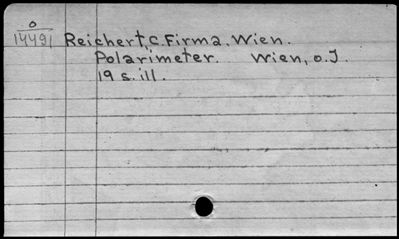 0
14491 Reichert, C. Firma. Wien.
Polarimeter. Wien, o.J.
19 s. ill.